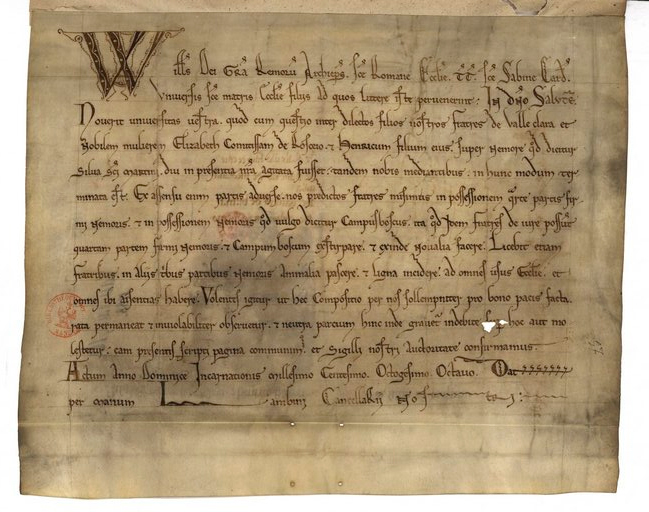 Wills Dei Gra Remorū Archieps. sce Romane Ecclie. TT. sce Sabine Card.
Vniuersis sce matris Ecclie filiis ad quos littere iste peruenerint. In dno Salute.
Nouerit uniuersitas uestra. quod cum questio inter dilectos filios nostros fratres de Valle clara et
nobilem mulierem Elizabeth Comitissam de Rosceio. & Henricum filium eius. super nemore qd dicitur
Silua sci martini. diu in presentia nra agitata fuisset. tandem nobis mediantibus. in hunc modum ter
minata est. Ex assensu enim partis aduerse. nos predictos fratres misimus in possessionem qrte partis fir
mi nemoris. & in possessionem nemoris qd uulgo dicitur Campusboscus. ita qd idem fratres de iure possint
quartam partem firmi nemoris. & Campumboscum exstirpare. & exinde noualia facere. Licebit etiam
fratribus. in aliis tribus partibus nemoris animalia pascere. & ligna incidere. ad omnes usus Ecclie. et
omnes ibi aisentias habere. Volentes igitur ut hec Compositio per nos sollempniter pro bono pacis facta.
rata permaneat & inuiolabiliter obseruetur. & neutra partium hinc inde grauetur indebite hoc aut mo
lestetur. eam presentis scripti pagina communimus. et Sigilli nostri auctoritate confirmamus.
Actum Anno Dominice Incarnationis millesimo Centesimo. Octogesimo. Octauo. Dat
per manum Lambini Cancellarii nostri.